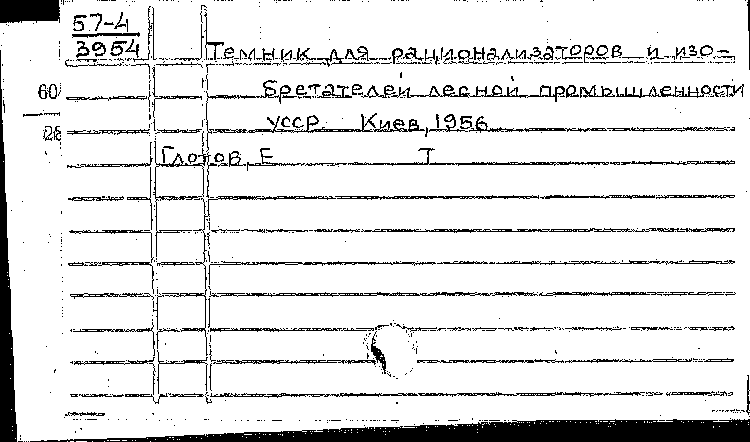 57-4
3954
Темник для рационализаторов и изо-
60
бретателей лесной промышленности
УССР Киев, 1956
28
Глотов, Е Т